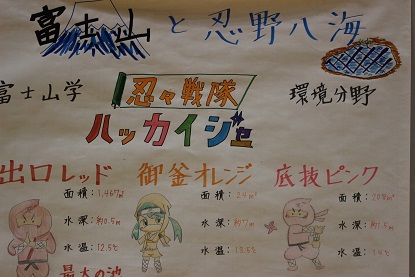 富士山と忍野八海
富士山学
忍々戦隊
環境分野
ハッカイジャー
出口レッド 御釜オレンジ 底抜ピンク
面積:1,467㎡
水深:約0.5m
水温:12.5℃
最大の池
面積:24㎡
水深:約7m
水温:13.5℃
面積:208㎡
水深:約1.5m
水温:14℃